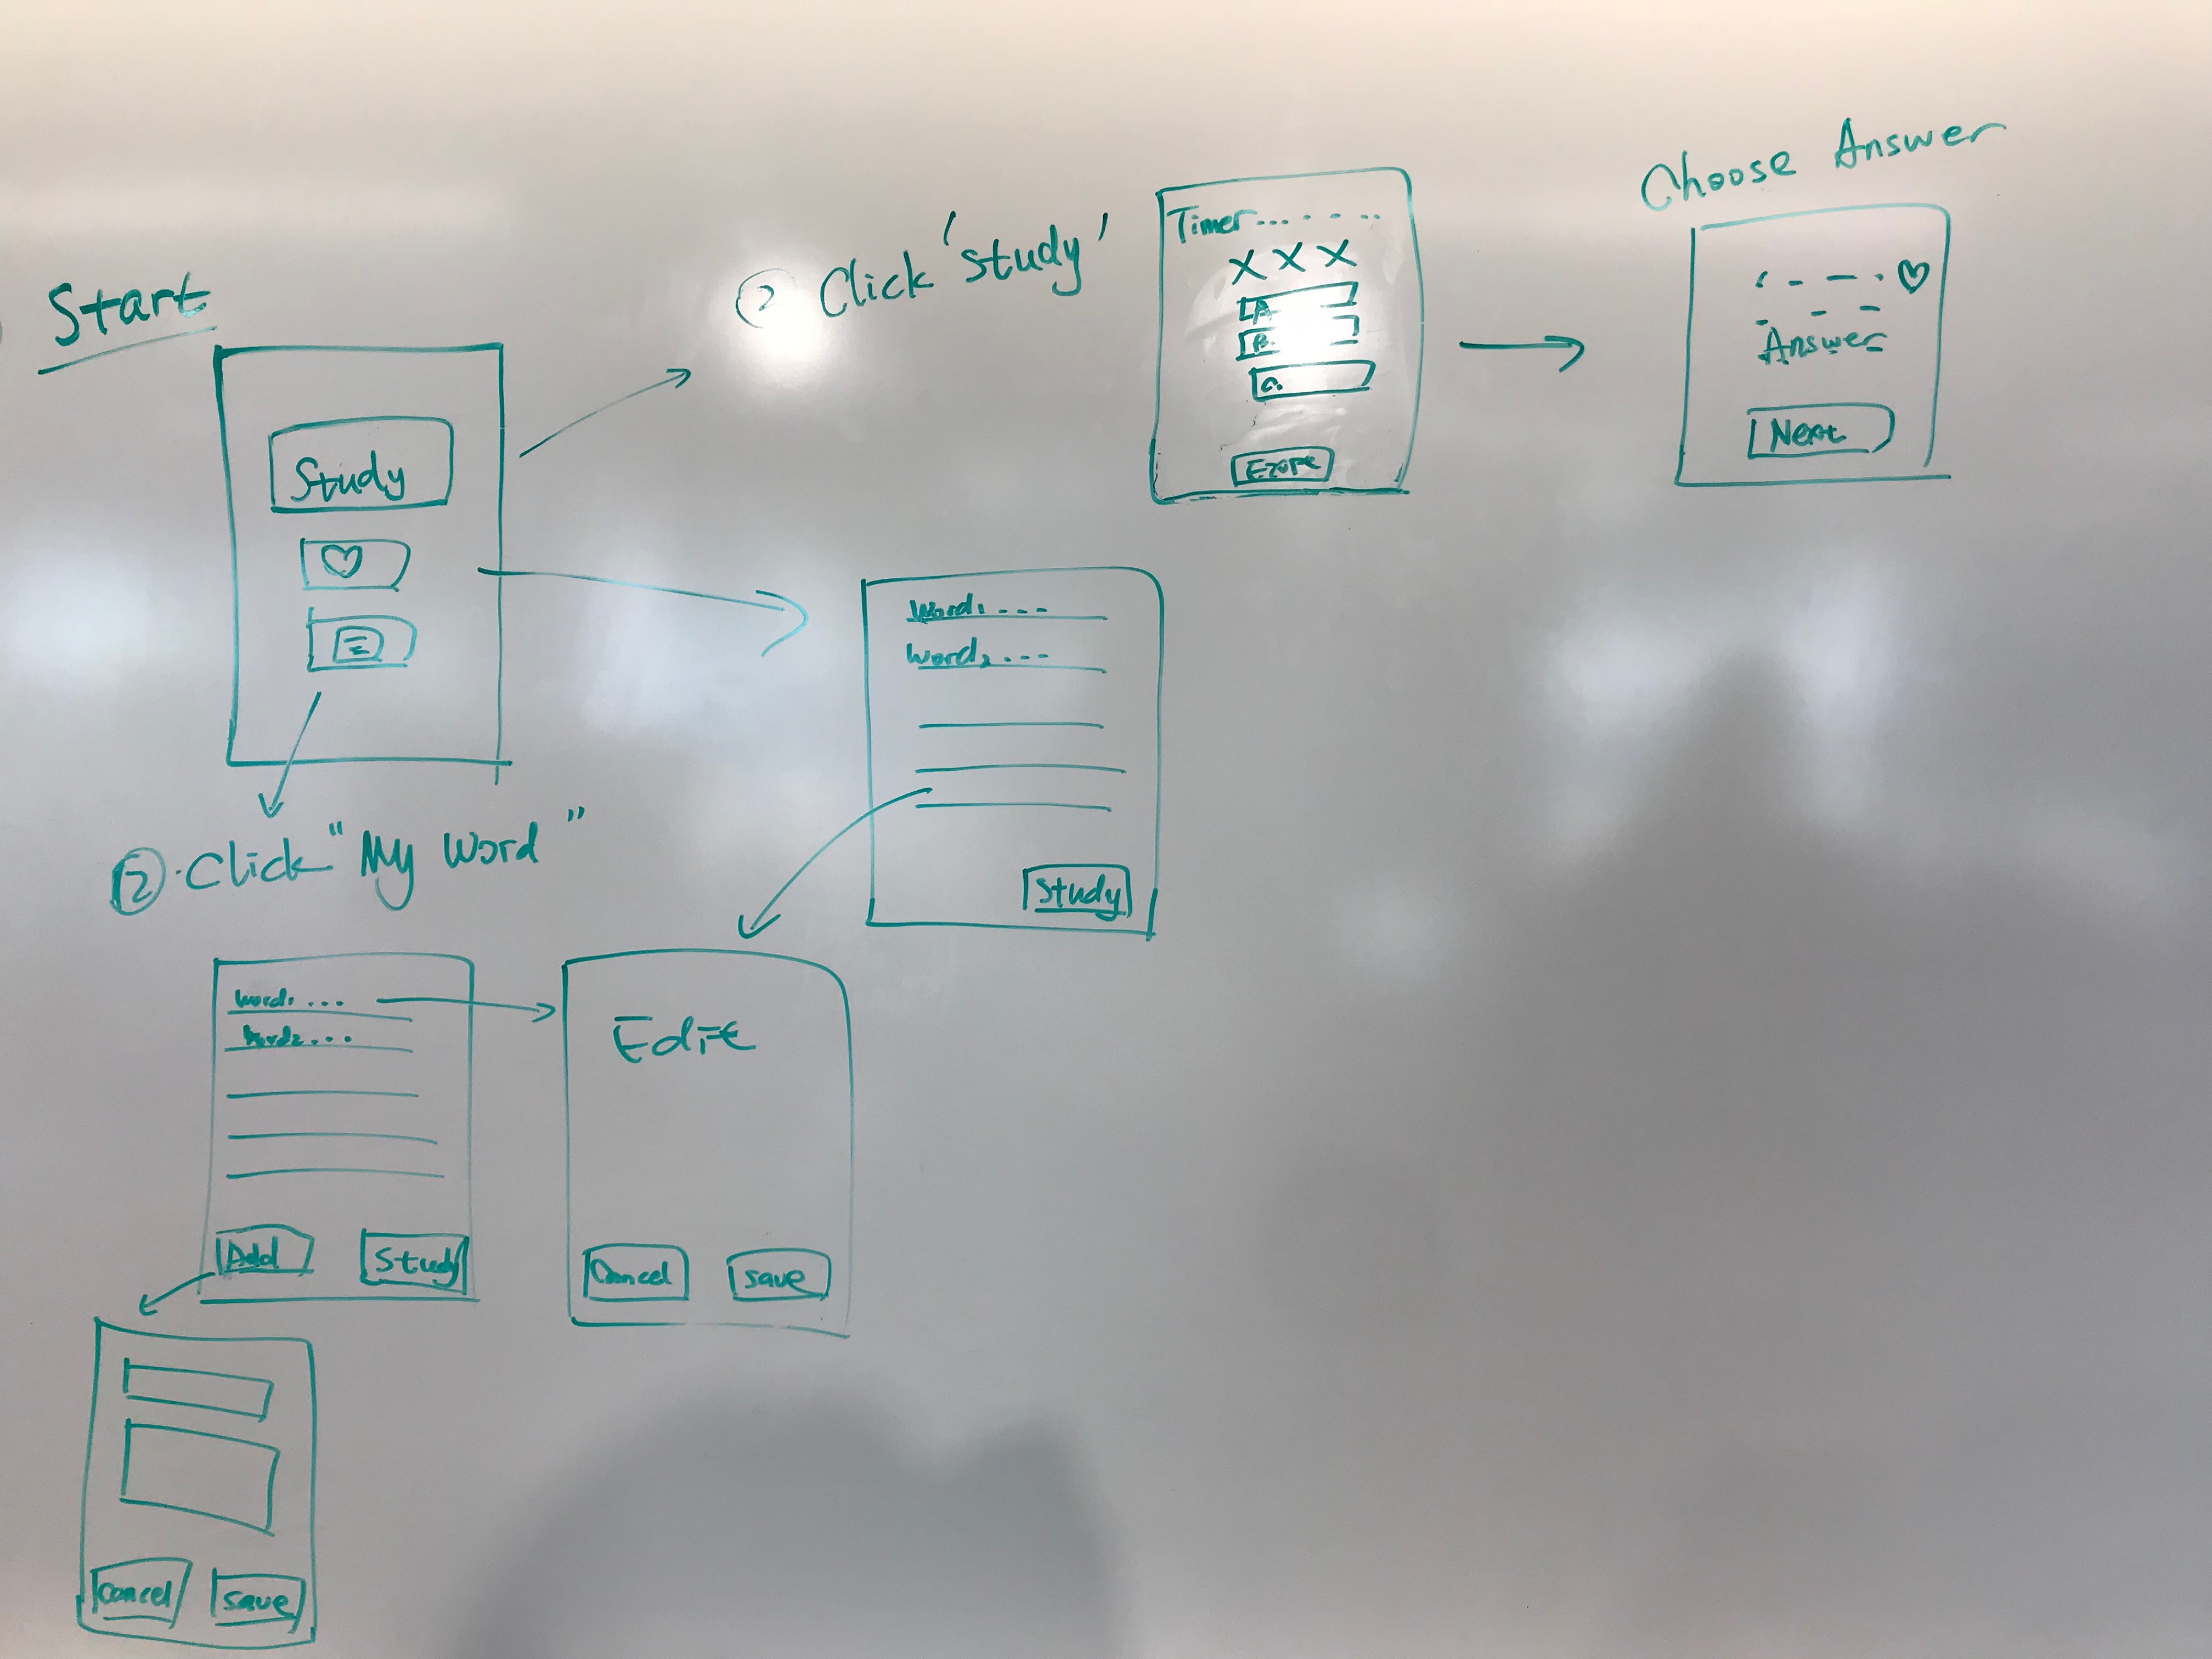 Start
Study
Click 'study'
Timer... - - --
X X X
A.
B.
C.
Choose Answer
Answer
Next
Word1 ...
Word2 ...
Study
②. Click "My Word"
Word1 ...
Word2 ...
Add
Study
Edit
Cancel
Save
Cancel
Save